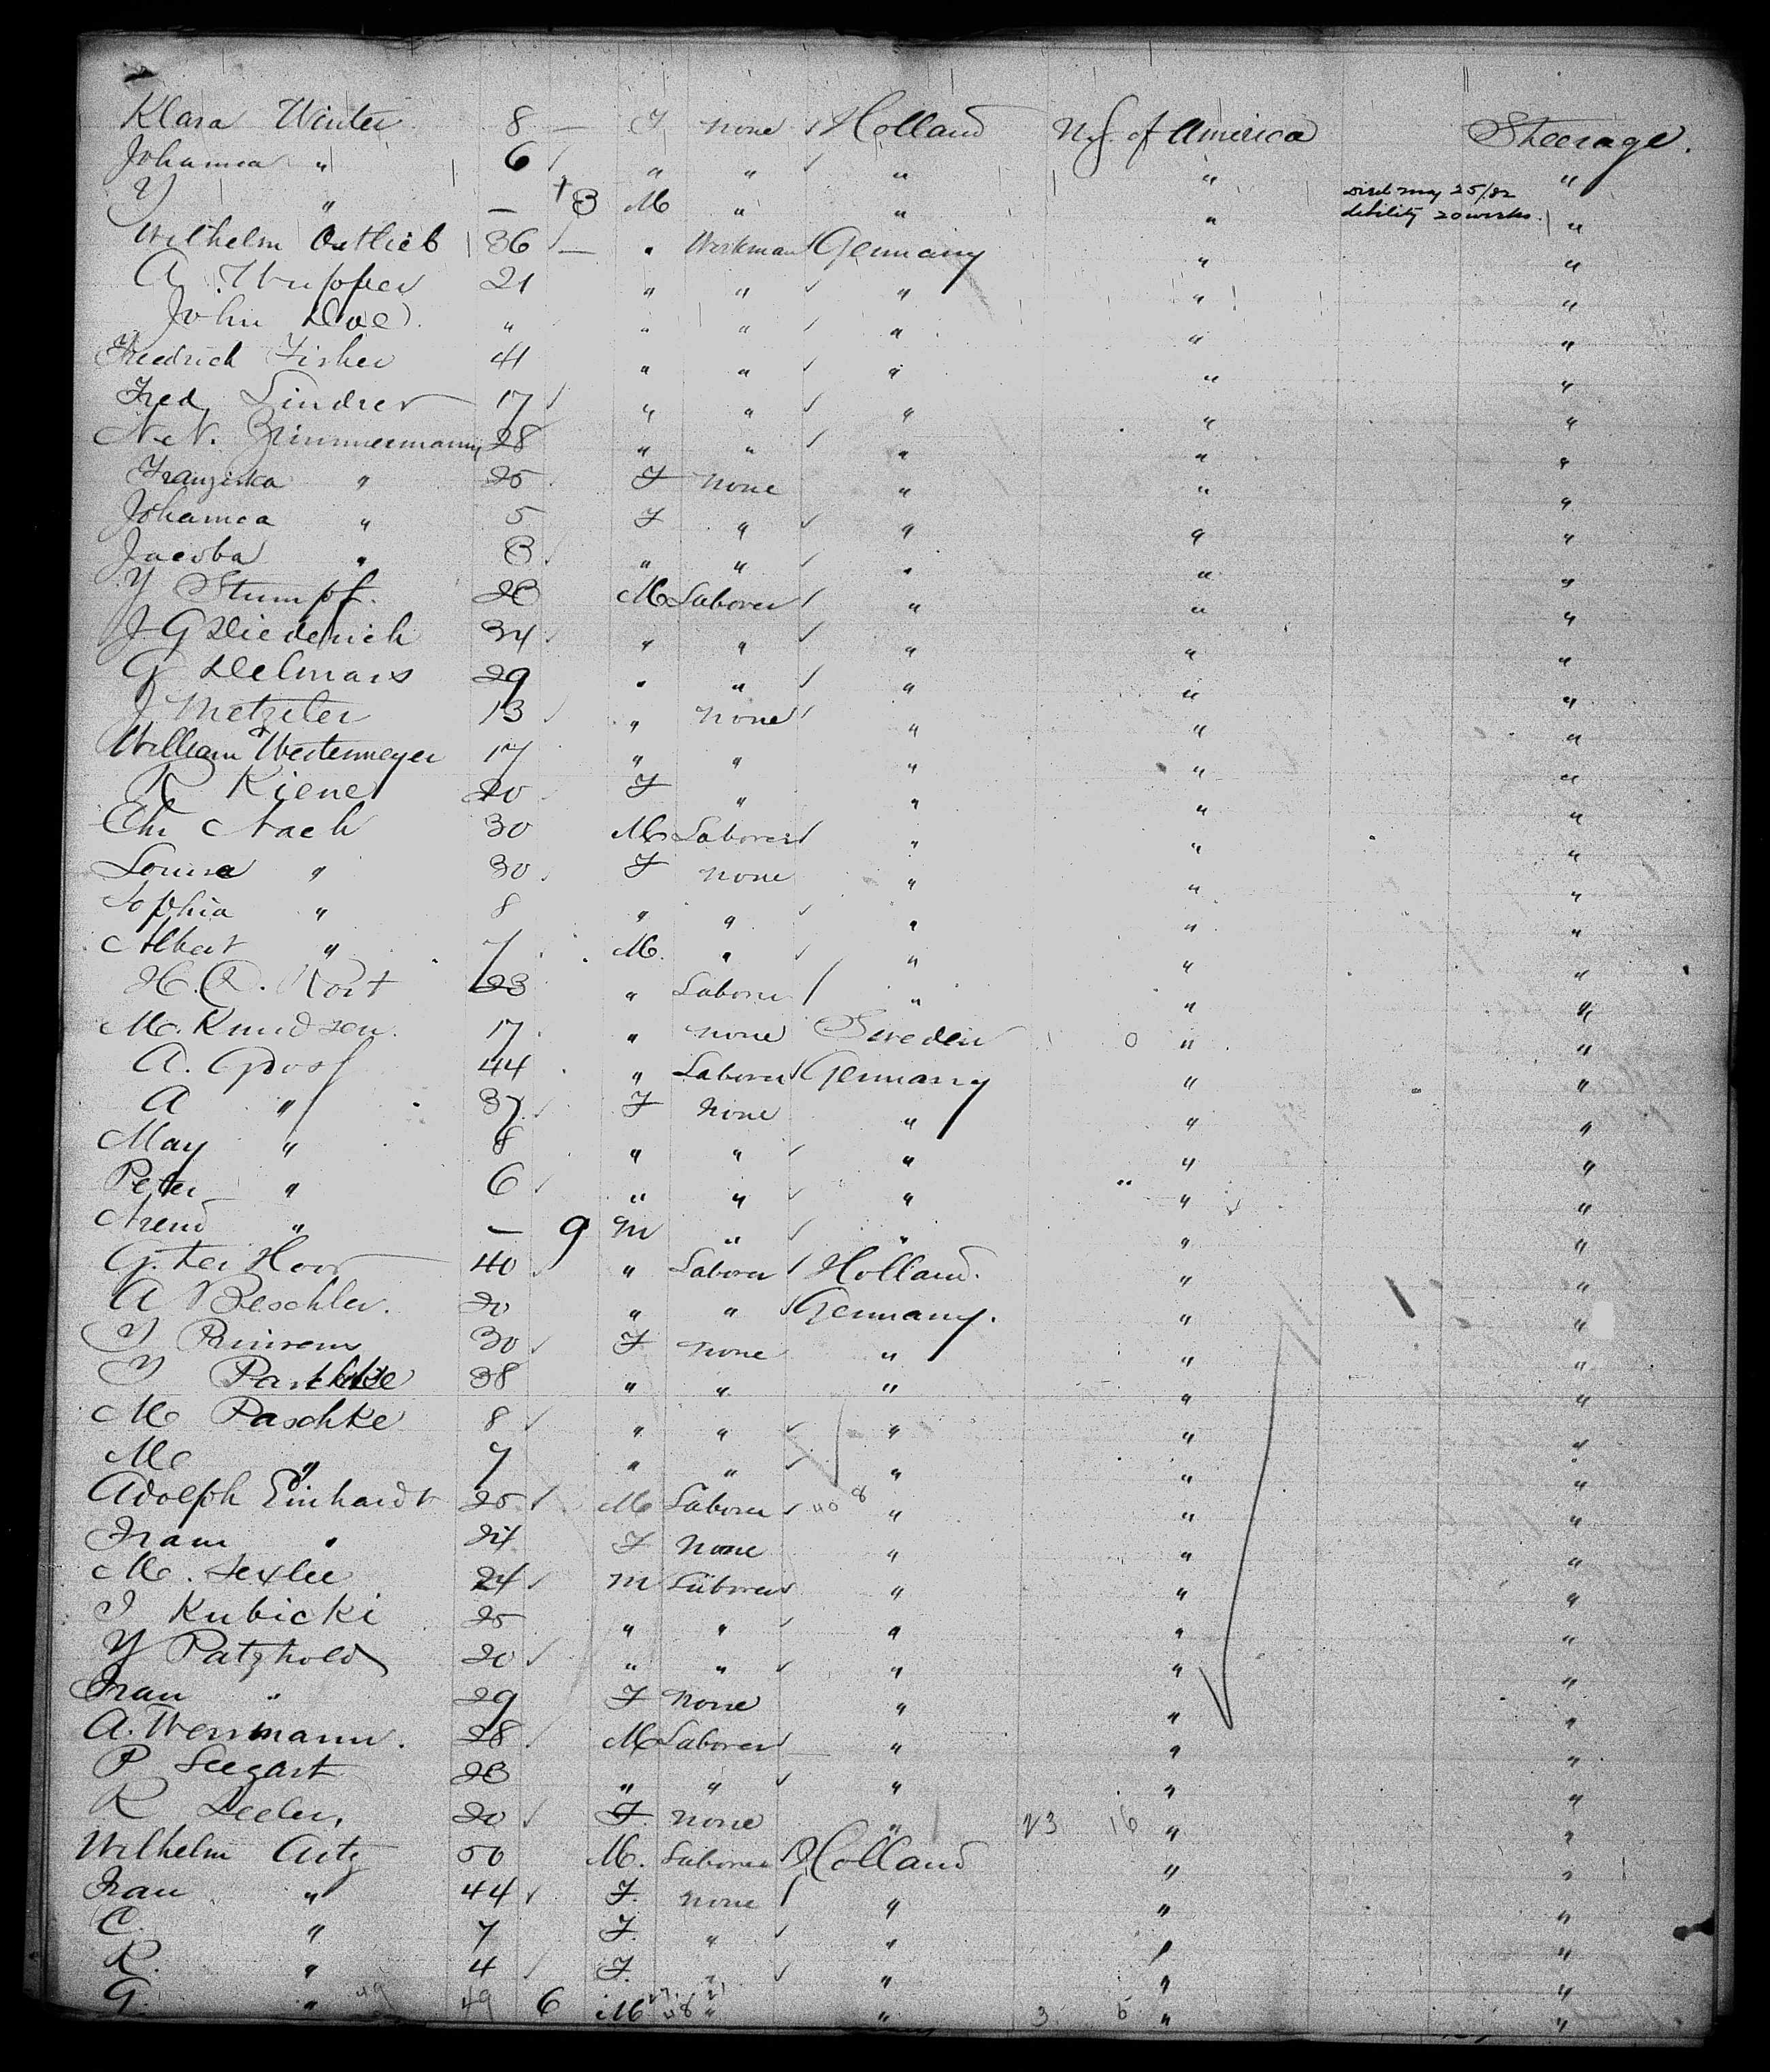 Klara Winter 8 — F none ✓ Holland U.S. of America Steerage.
Johanna " 6 ✓ " " ✓ " " "
Y " — † 3 M " " " Died May 25/82 debility 20 weeks. "
Wilhelm Gottlieb 36 — " Workman ✓ Germany " "
A. Wupper 21 " " ✓ " " "
John Doe " " " ✓ " " "
Friedrich Fisher 41 " " ✓ " " "
Fred Lindner 17 ✓ " " ✓ " " "
N.N. Zimmermann 28 " " ✓ " " "
Franziska " 25 F none " " "
Johanna " 5 F " ✓ " " "
Jacoba " 3 ✓ " " ✓ " " "
Y Stumpf. 23 M Laborer ✓ " " "
J G Diederich 34 ✓ " " ✓ " " "
G Delmars 29 " " ✓ " " "
J Metzeler 13 ✓ " none ✓ " " "
William Westermeyer 17 " " " " "
R Kiene 20 F " " " "
Chr Nach 30 M Laborer ✓ " " "
Louise " 30 F none " " "
Sophia " 8 " " ✓ " " "
Albert " 7 M. " ✓ " " "
H. A. Kost 23 " Laborer ✓ " " "
M. Knudsen. 17 " none Sweden " "
A. 44 " Laborer ✓ Germany " "
A " 37 ✓ F none " " "
May " 8 " " ✓ " " "
Peter " 6 ✓ " " ✓ " " "
Arend " — 9 M " ✓ " " "
G. ter Hoor 40 ✓ " Laborer ✓ Holland. " "
A Beschler. 20 " " ✓ Germany. " "
Y 30 ✓ F none " " "
Y Paschke 38 " " " " "
M Paschke 8 ✓ " " ✓ " " "
M " 7 " " ✓ " " "
Adolph Einhardt 25 ✓ M Laborer ✓ " " "
Frau " 24 F None " " "
M. Sexlee 24 ✓ M Laborer ✓ " " "
I Kubicki 25 " " ✓ " " "
Y Patzhold 20 ✓ " " ✓ " " "
Frau " 29 F None " " "
A. Wersmann. 28 ✓ M Laborer ✓ " " "
P Seegart 23 " " ✓ " " "
R Deeler, 20 ✓ F. none " 23 16 " "
Wilhelm Artz 50 M. Laborer ✓ Holland " "
Frau " 44 ✓ F. none ✓ " " "
C. " 7 F. " ✓ " " "
R. " 4 ✓ F. " ✓ " " "
G. " 49 6 M " " 3 6 " "